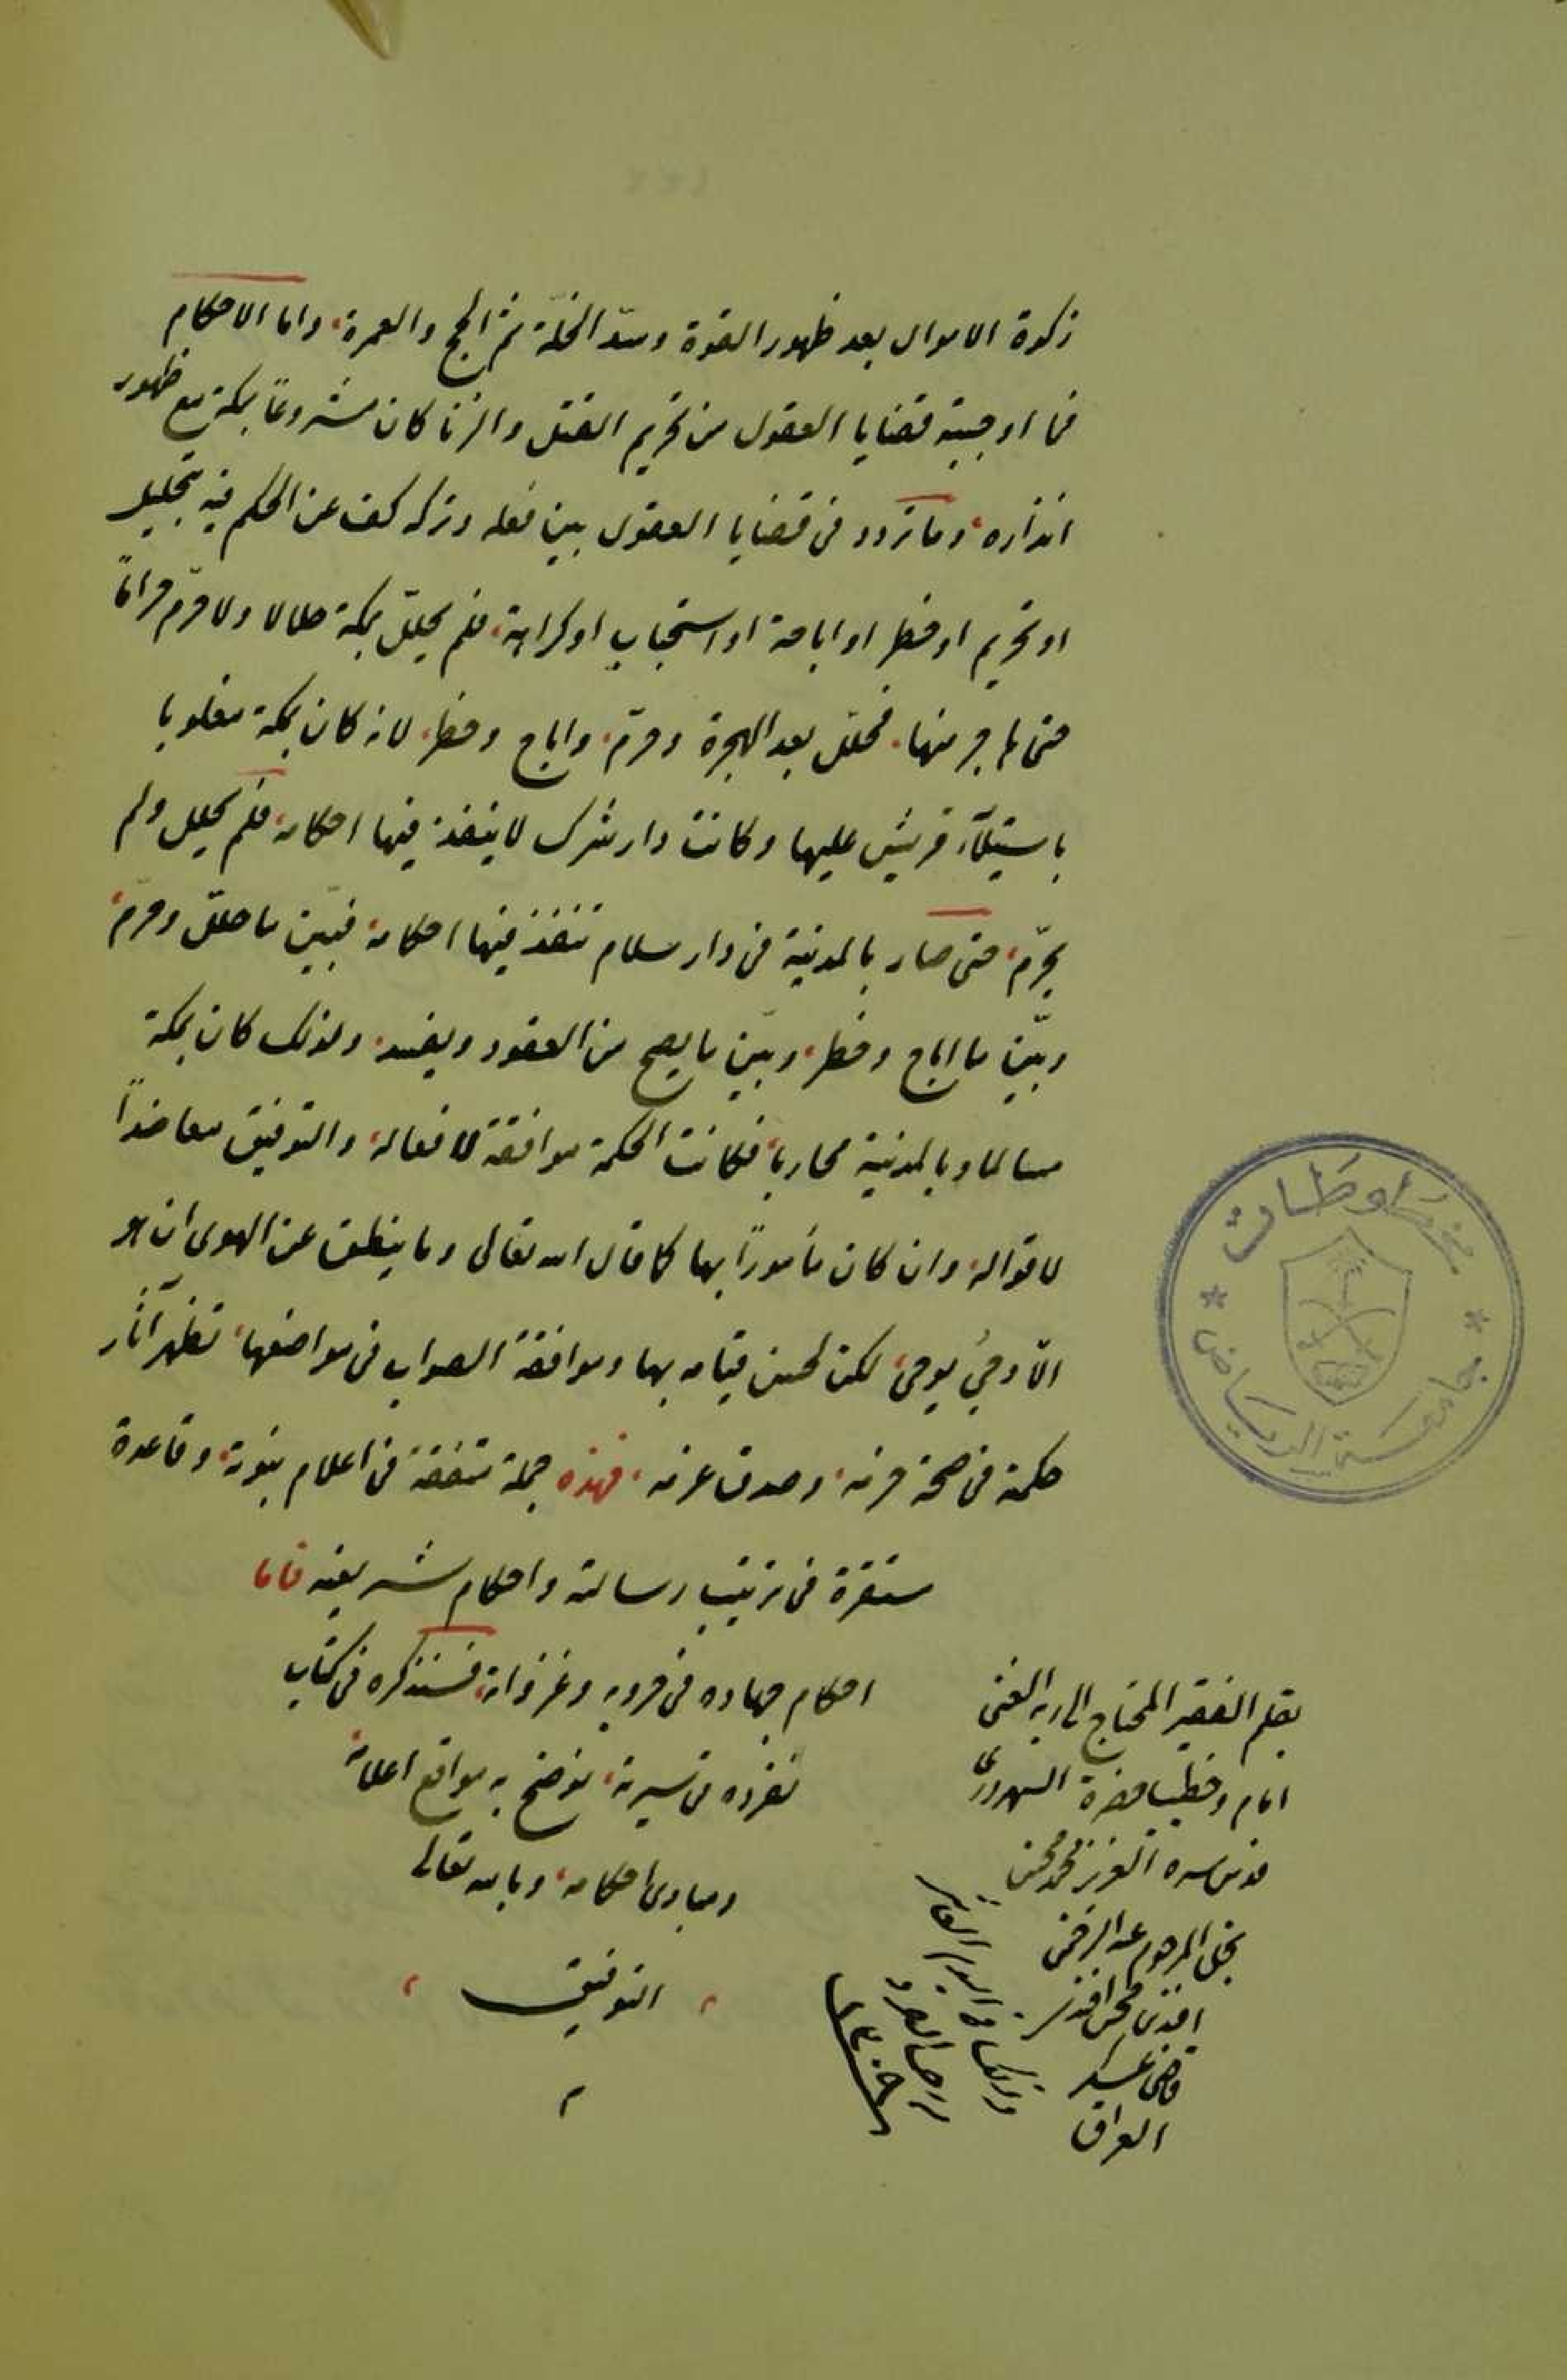 زكوة الاموال بعد ظهور القوة وسدّ الخلّة ثم الحج والعمرة، واما الاحكام
فما اوجبته قضايا العقول من تحريم القتل والزنا كان مشروعًا بمكة مع ظهور
انذاره، وما تردد فى قضايا العقول بين فعله وتركه كف عن الحكم فيه بتحليل
او تحريم او حظر او اباحة او استحباب او كراهة، فلم يحلّل بمكة حلالا ولا حرّم حرامًا
حتى هاجر منها، فحلّل بعد الهجرة وحرّم، واباح وحظر، لانه كان بمكة مغلوبا
باستيلآء قريش عليها وكانت دار شرك لا ينفذ فيها احكامه، فلم يحلل ولم
يحرّم، حتى صار بالمدينة فى دار سلام تنفذ فيها احكامه، فبيّن ما حلّل وحرّم،
وبيّن ما اباح وحظر، وبيّن ما يصح من العقود ويفسد، ولذلك كان بمكة
مسالما وبالمدينة محاربا، فكانت الحكمة موافقة لافعاله، والتوفيق معاضداً
لاقواله، وان كان مأموراً بها كما قال الله تعالى وما ينطق عن الهوى ان هو
الّا وحىٌ يوحى، لكن لحسن قيامه بها وموافقة الصواب فى مواضعها، تظهر آثار
حكمته فى صحة حزمه، وصدق عزمه، فهذه جملة متفقة فى اعلام نبوته، وقاعدة
مستقرة فى ترتيب رسالته واحكام شريعته فاما
احكام جهاده فى حروبه وغزواته، فسنذكره فى كتاب
نفرده فى سيرته، نوضح به مواقع اعلامه
ومبادى احكامه، وبالله تعالى
، التوفيق ،
م
بقلم الفقير المحتاج الى ربه الغنى
امام وخطيب حضرة السهروردى
قدس سره العزيز محمد محسن
نجل المرحوم عبد الرحمن
افندى محسن افندى
قاضى عسكر
العراق
وذلك فى اليوم العاشر
جامعة الرياض